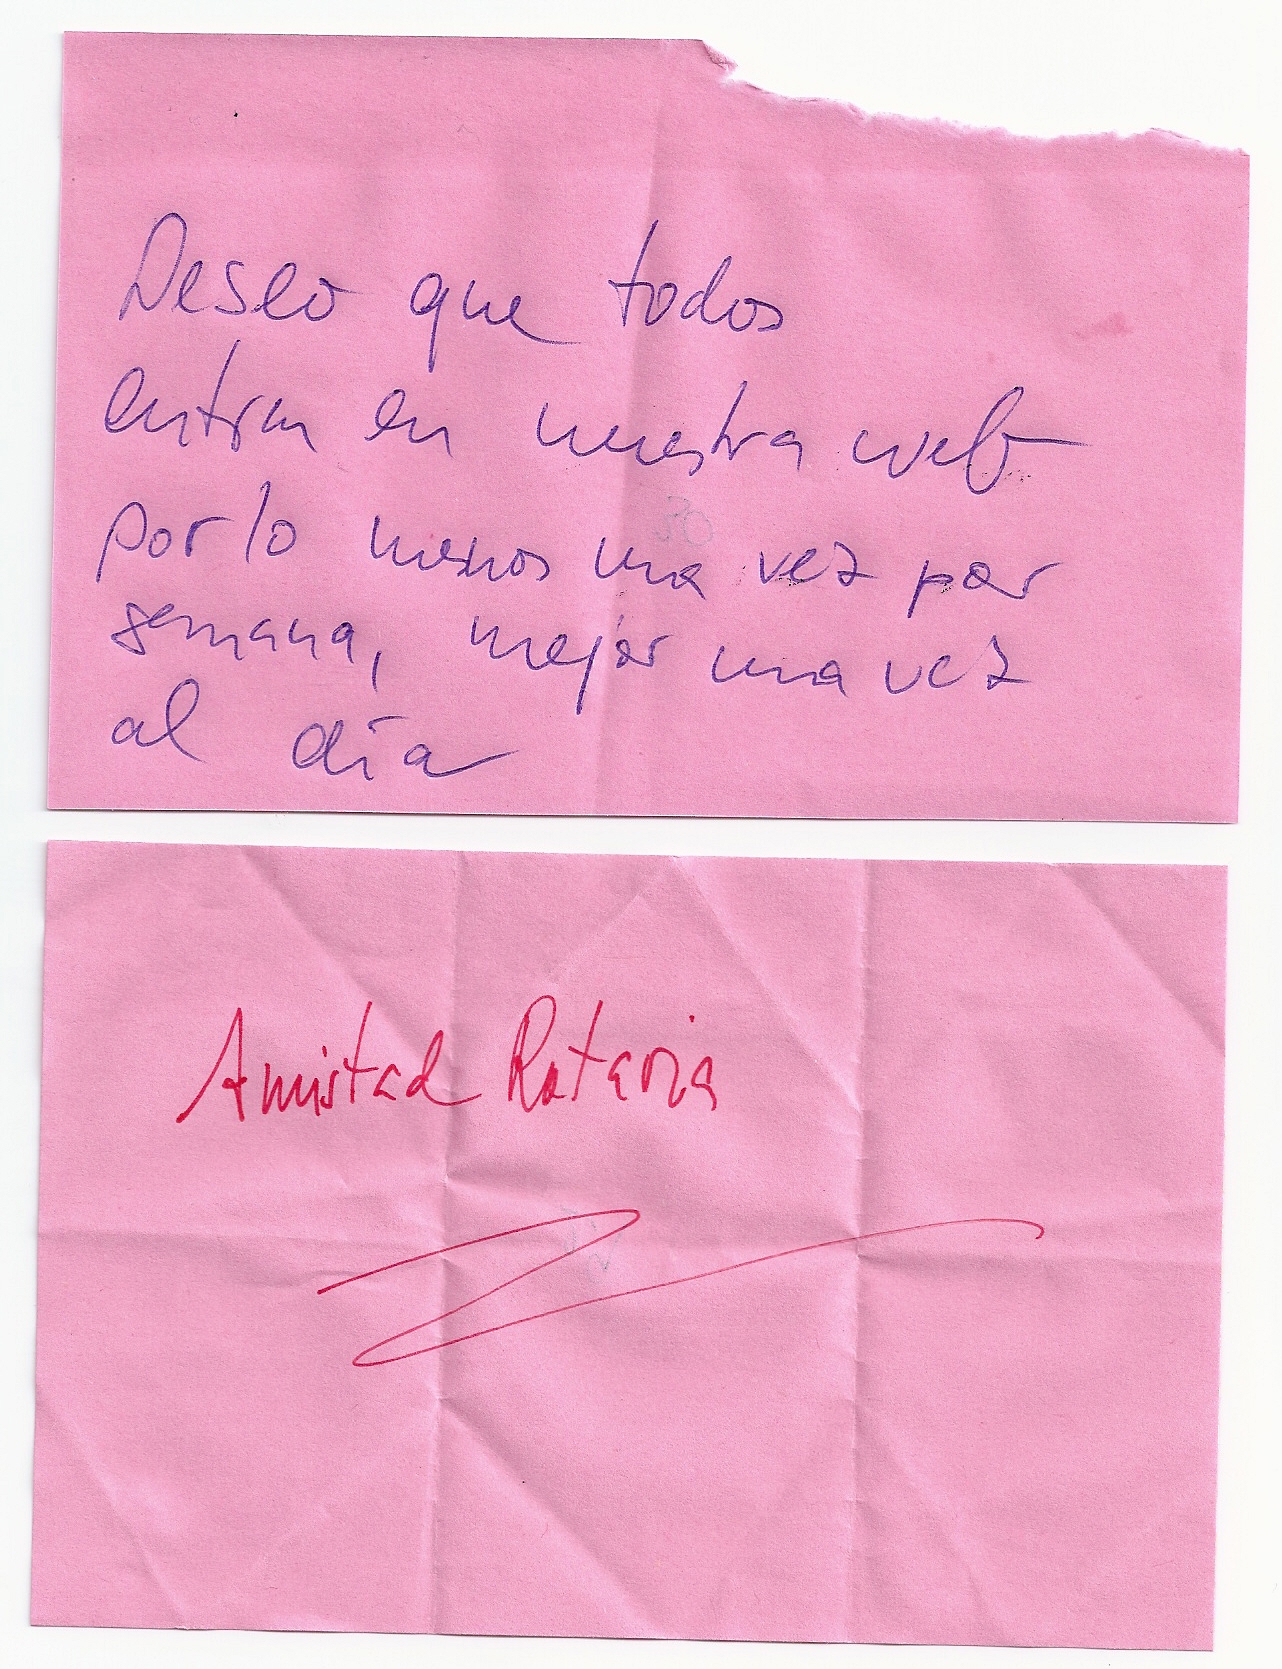 Deseo que todos
entran en nuestra web
por lo menos una vez por
semana, mejor una vez
al día
Amistad Rotaria